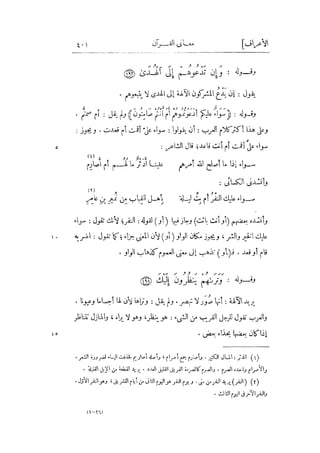 الأعراف] معـانى القـــرآن ٤٠١
وقـــوله : ﴿ وَإِن تَدْعُوهُـمْ إِلَى ٱلْهُدَىٰ
يقول : إن يَدْعُ المشركون الآلهة إلى الهدى لا يتبعوهم .
وقـوله : ﴿سَوَآءٌ عليكم أَدَعَوْتُمُوهُمْ أَمْ أَنتُمْ صَٰمِتُونَ﴾ ولم يقل : أم صَمَتُّم .
وعلى هذا أكثر كلام العرب : أن يقولوا : سواء علىّ أقمت أم قعدت . ويجوز :
سواء علىّ أقمت أم أنت قاعد؛ قال الشاعر : ٥
ســواء إذا ما أصلح الله أمرهم علينــا أَدَثْر مالهم أم أصارِم (١)
وأنشدنى الكسائىّ :
ســواء عليك النَّفْرُ أم بِتّ ليــلة بأهــل القِباب من نُمَير بن عامِرِ (٢)
وأنشده بعضهم (أو أنت بائت) وجاز فيها (أو) لقوله : النفر؛ لأنك تقول : سواء
عليك الخير والشر، ويجوز مكان الواو (أو) لأن المعنى جزاء؛ كما تقول : اضربه ١٠
قام أو قعد . فـ(أو) تذهب إلى معنى العموم كذهاب الواو .
وقــوله : ﴿ وَتَرَىٰهُمْ يَنظُرُونَ إِلَيْكَ
يريد الآلهة : أنها صُوَر لا تبصر . ولم يقل : وتراها لأن لها أجساما وعيونا .
والعرب تقول للرجل القريب من الشىء : هو ينظر، وهو لا يراه، والمنازل تتناظر
إذا كان بعضها بحذاء بعض . ١٥
(١) الدثر : المال الكثير . وأصارم جمع أصرام ؛ وأصله أصاريم حذفت اليـاء لضرورة الشعر .
والأصرام واحده الصرم . والصرم كالصرمة الفريق القليل العدد . يريد القطعة من الإبل القليلة .
(٢) (النفر) يريد النفر من منى . ويوم النفر هو اليوم الثانى من أيام التشريق ؛ وهو النفر الأول .
والنفر الآخر فى اليوم الثالث .
(٢٦-١)